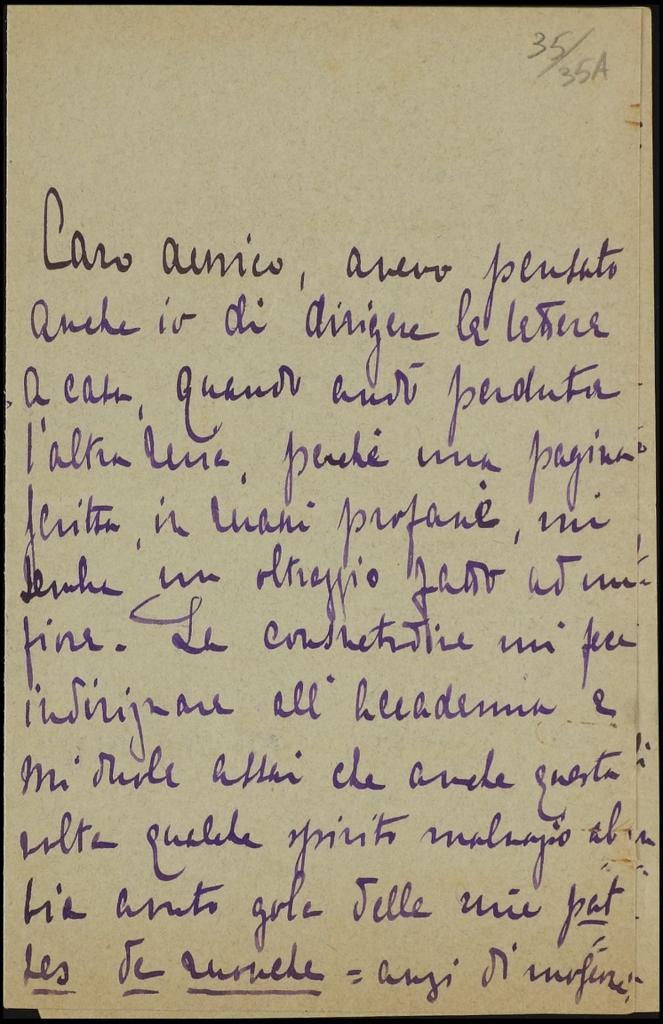 35/35A
Caro amico, avevo pensato
anche io di dirigere le lettere
a casa, quando andò perduta
l'altra mia, perchè una pagina
scritta, in mani profane, mi
sembra un oltraggio fatto ad un
fiore. La consuetudine mi fece
indirizzare all'Accademia e
mi duole assai che anche questa
volta qualche spirito malvagio ab
bia avuto gola delle mie pat
tes de mouche = anzi di